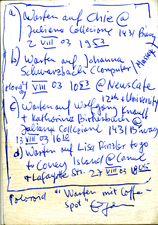 a) Warten auf Chie @
Juliana Collezione 1431 Bway
2 VIII 03 1953
b) Warten auf Johanna
Schwarzbach (Computer)
VIII 03 1083 @ News Cafe
12th & University
c) Warten auf Wolfgang
+ Katharina @
Juliana Collezione 1431 Bway
13 VIII 03 1612
d) Warten auf Lisa to go
to Coney Island @ Canal
+ Lafayette Str. 27 VIII 03 1805
"Warten mit